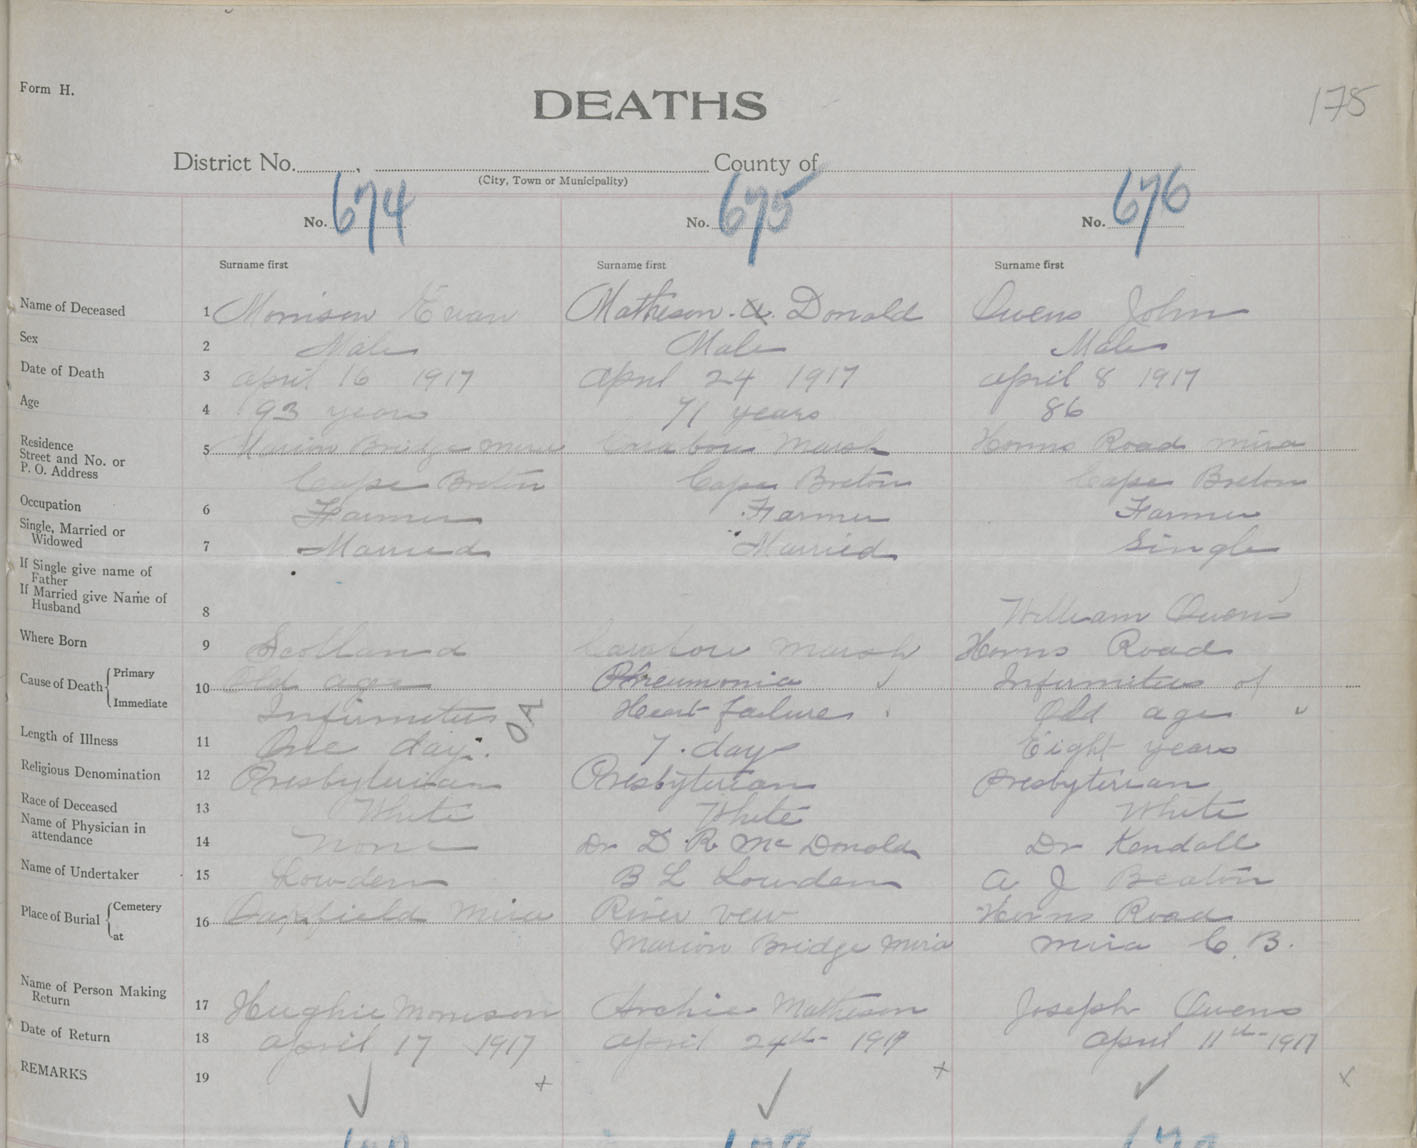 Form H.
DEATHS
175
District No. , County of
(City, Town or Municipality)
No. 674 No. 675 No. 676
Surname first Surname first Surname first
Name of Deceased 1 Morrison Ewan Matheson Donald Owens John
Sex 2 Male Male Male
Date of Death 3 april 16 1917 april 24 1917 april 8 1917
Age 4 93 years 71 years 86
Residence
Street and No. or
P. O. Address 5 Marion Bridge Mira Carabou Marsh Horns Road Mira
Cape Breton Cape Breton Cape Breton
Occupation 6 Farmer Farmer Farmer
Single, Married or
Widowed 7 Married Married Single
If Single give name of
Father
If Married give Name of
Husband 8 William Owens
Where Born 9 Scotland Carabou Marsh Horns Road
Cause of Death { Primary 10 Old age Pneumonia Infirmitus of
Immediate Infirmitus OA Heart failure Old age
Length of Illness 11 One day. 7. day Eight years
Religious Denomination 12 Presbyterian Presbyterian Presbyterian
Race of Deceased 13 White White White
Name of Physician in
attendance 14 None Dr D. R Mc Donald Dr Kendall
Name of Undertaker 15 Lowden B L Lowden A J Beaton
Place of Burial { Cemetery 16 Mira River vew Horns Road
at Marion Bridge Mira Mira C. B.
Name of Person Making
Return 17 Hughie Morrison Archie Matheson Joseph Owens
Date of Return 18 april 17 1917 april 24th 1917 april 11th 1917
REMARKS 19